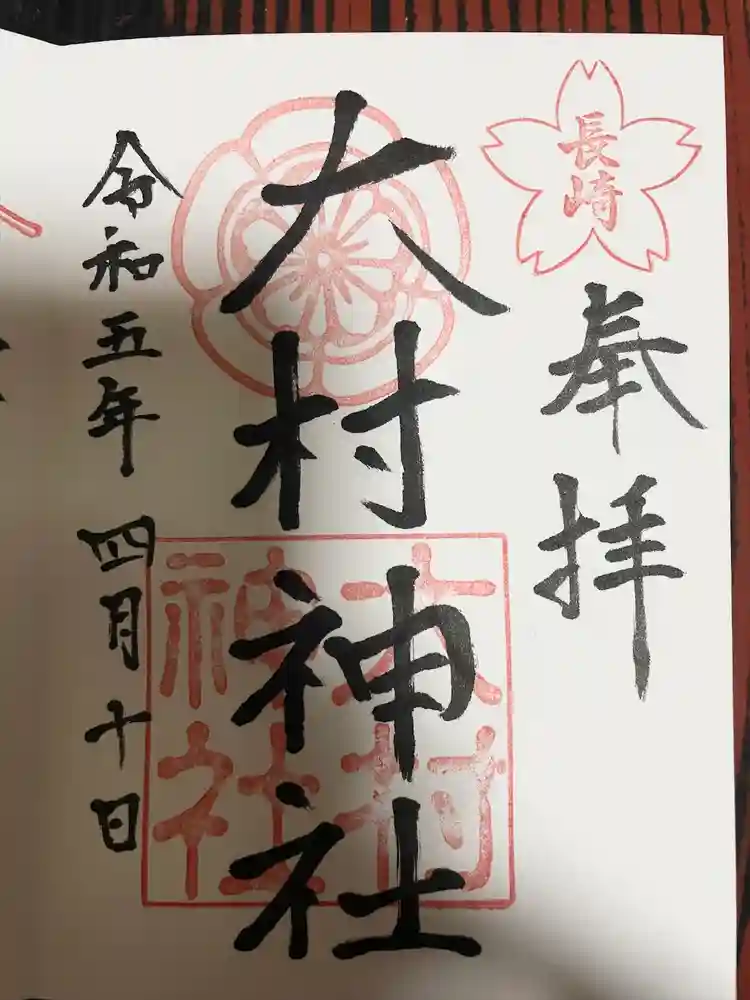 長崎
奉拝
大村神社
大村
神社
令和五年 四月十日